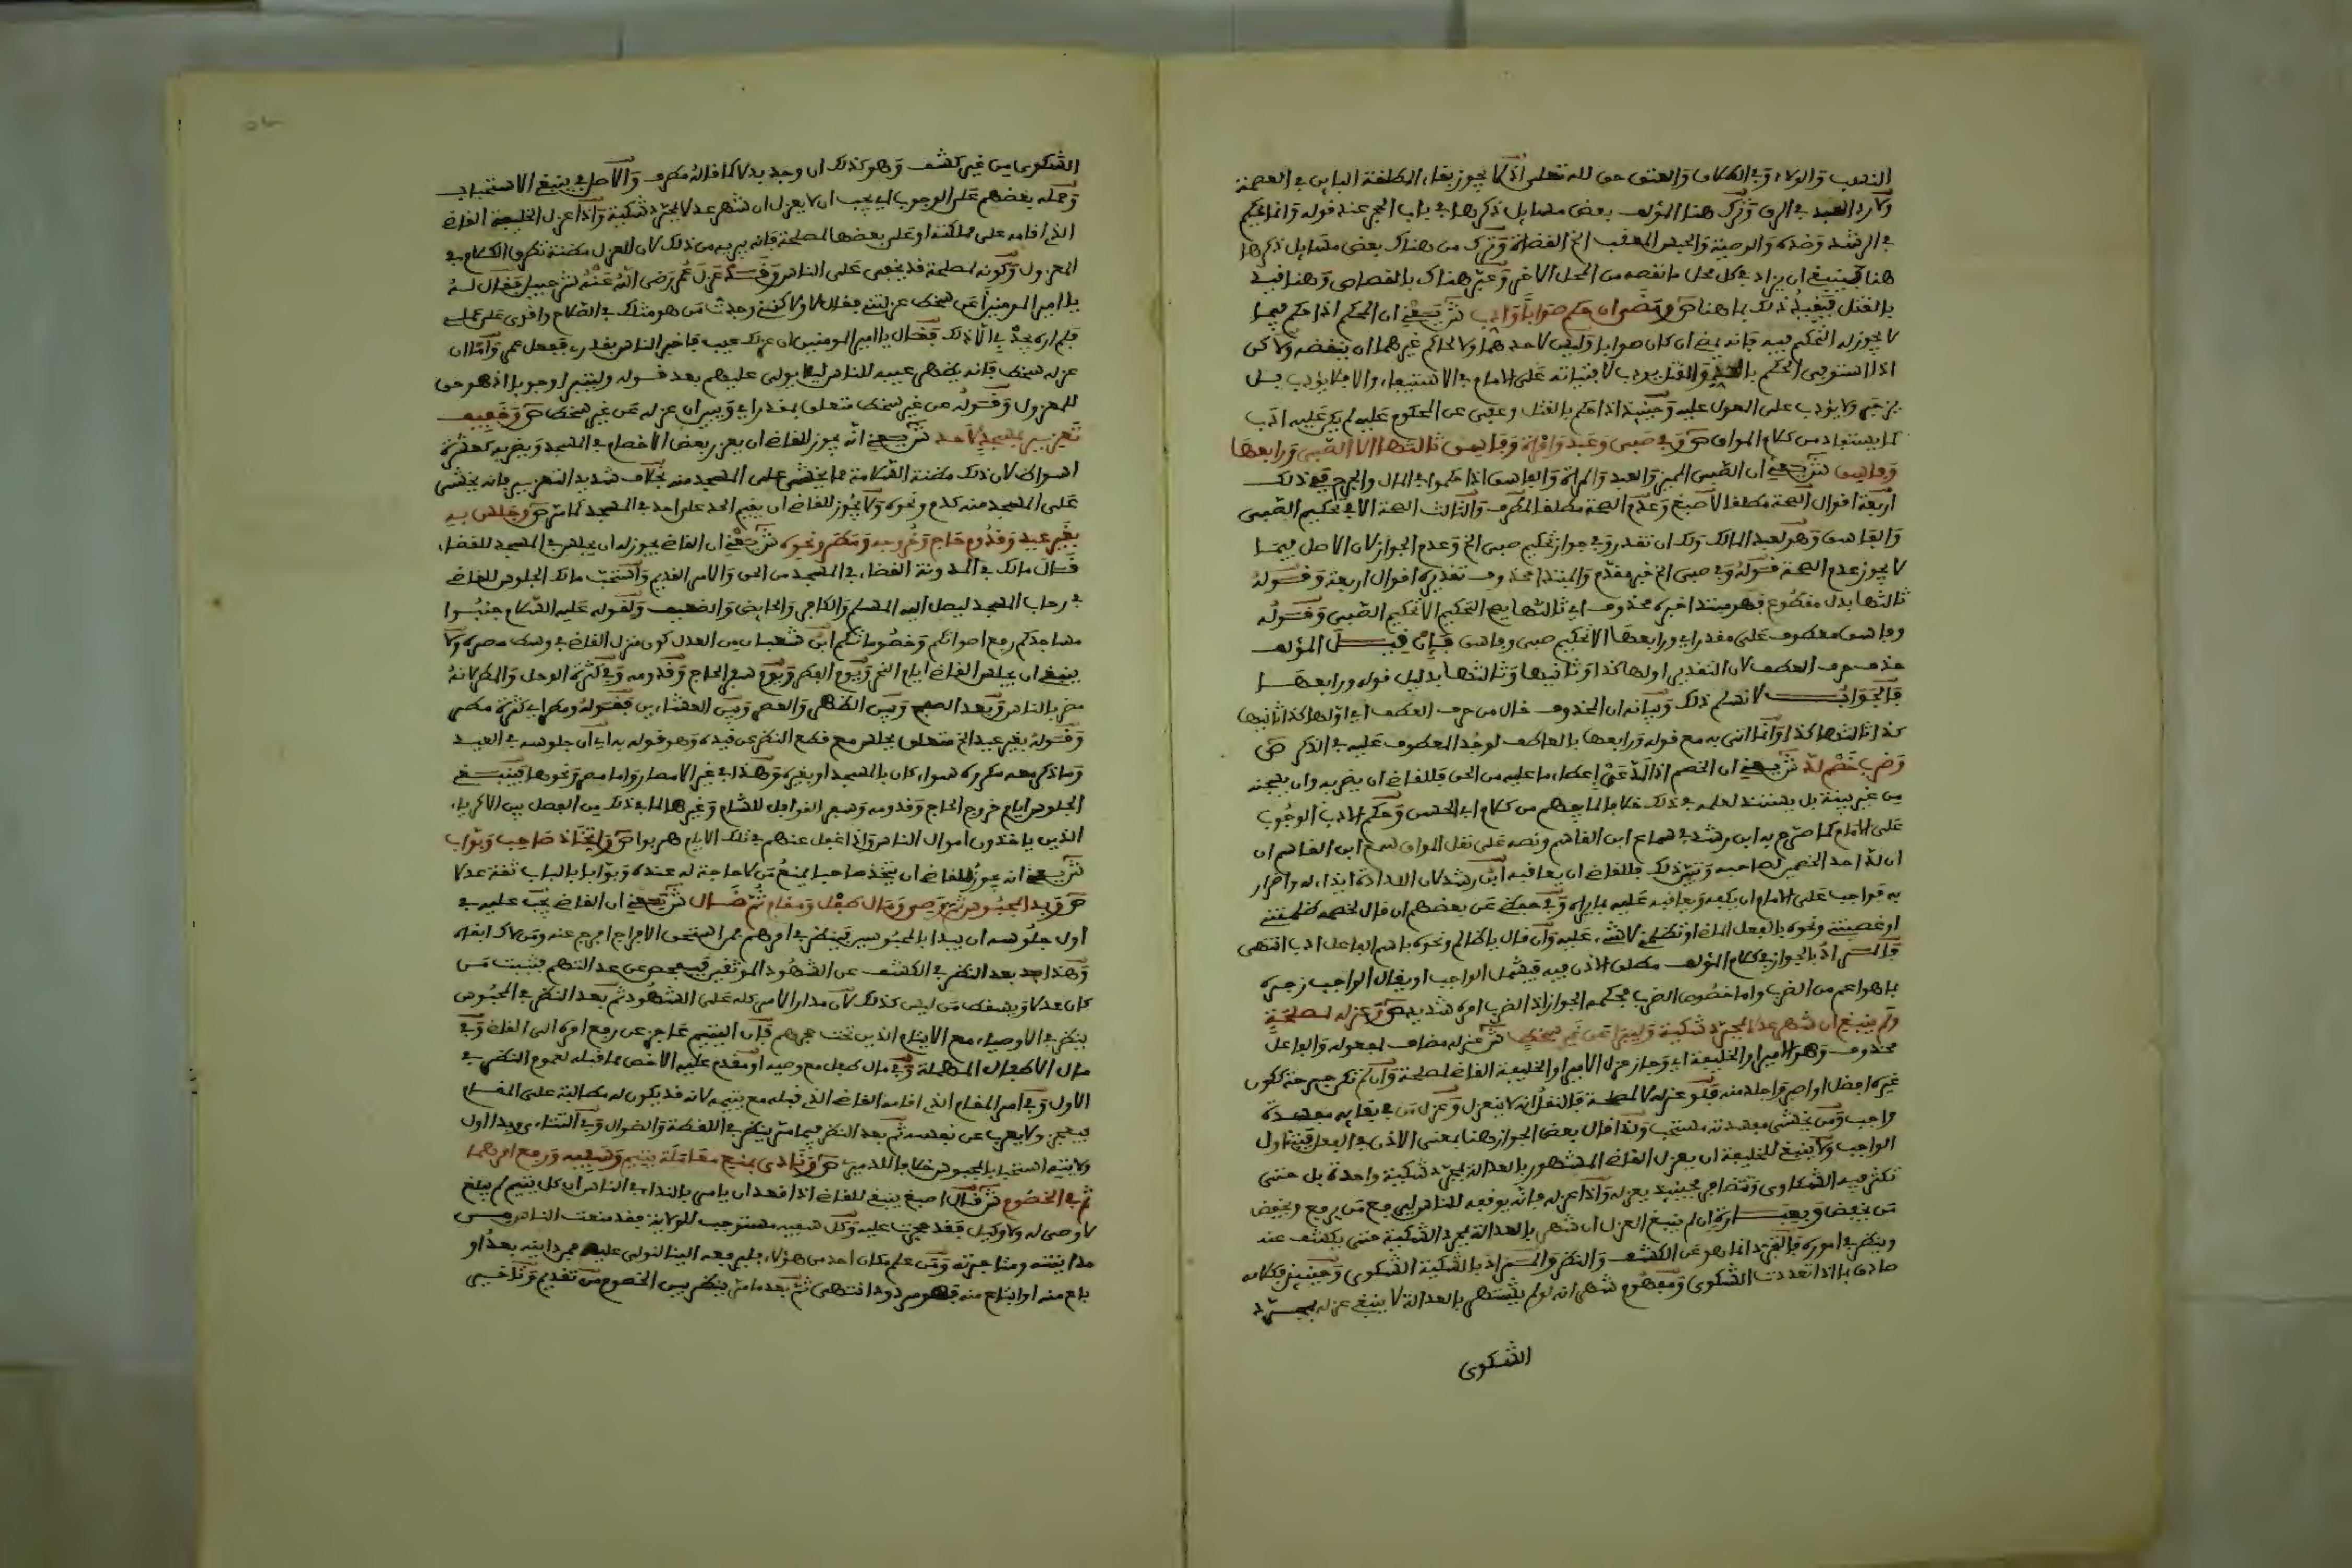 النسب والولاء وفي الطلاق والعتق حق لله تعالى اذ لا يجوز بقاء المطلقة الباين في العصمة
ولا رد العبد في الرق وترك هنا المؤلف بعض مسايل ذكرها في باب الحجر عند قوله وانما يحكم
في الرشد وضده والوصية والحبس المعقب الخ القضاة وترك من هناك بعض مسايل ذكرها
هنا فينبغي ان يزاد في كل محل ما نقصه من المحل الاخر وعبر هناك بالقصاص وهنا فيه
بالقتل فيقيد ذلك بما هنا ص ومضى ان حكم صوابا وادب ش يعني ان المحكم اذا حكم فيما
لا يجوز له التحكيم فيه فانه يمضي ان كان صوابا وليس لاحدهما ولا لحاكم غيرهما ان ينقضه ولاكن
اذا استوفى الحكم بالحد والقتل يودب لافتياته على الامام في الاستيفاء والا فلا يؤدب بل
يزجر ولا يؤدب على المعول عليه وحينيذ اذا حكم بالقتل وعفى عن المحكوم عليه لم يكن عليه ادب
كما يستفاد من كلام المواق ص وفي صبي وعبد وامراة وفاسق ثالثها الا الصبي ورابعها
وفاسق ش يعني ان الصبي المميز والعبد والمراة والفاسق اذا حكموا في المال والجرح ففي ذلك
اربعة اقوال الصحة مطلقا لاصبغ وعدم الصحة مطلقا لمطرف والثالث الصحة الا في تحكيم الصبي
والفاسق وهو لعبد المالك ولك ان تقدر وفي جواز تحكيم صبي الخ وعدم الجواز لان الاصل فيما
لا يجوز عدم الصحة فقوله وفي صبي الخ خبر مقدم والمبتدا محذوف تقديره اقوال اربعة وقوله
ثالثها بدل مقطوع فهو مبتدا خبره محذوف اي ثالثها يصح التحكيم الا تحكيم الصبي وقوله
وفاسق معطوف على مقدر اي ورابعها الا تحكيم صبي وفاسق فان قيل المؤلف
حذف حرف العطف لان التقدير اولها كذا وثانيها وثالثها بدليل قوله ورابعها
فالجواب لا نسلم ذلك وبيانه ان المحذوف خال من حرف العطف اي اولها كذا ثانيها
كذا ثالثها كذا وانما اتى به مع قوله ورابعها بالعاطف لوجود المعطوف عليه في الذكر ص
وضرب خصم لد ش يعني ان الخصم اذا لد عن اعطاء ما عليه من الحق فللقاضي ان يضربه وان يسجنه
من غير بينة بل يستند لعلمه في ذلك خلافا لما يفهم من كلام ابي الحسن وحكم الادب الوجوب
على الامام كما صرح به ابن رشد في سماع ابن القاسم ونصه على نقل المواق سمع ابن القاسم ان
ان لد احد الخصمين لصاحبه وتبين ذلك فللقاضي ان يعاقبه ابن رشد لان اللدادة ايذاء له واضرار
به فواجب على الامام ان يكفه ويعاقبه عليه بما يراه وفي حفظي عن بعضهم ان قال لخصمه ظلمتني
او غصبتني ونحوه بالفعل الماضي او تظلمني لا شيء عليه وان قال يا ظالم ونحوه باسم الفاعل ادب انتهى
فالمراد بالجواز في كلام المؤلف مطلق الاذن فيه فيشمل الواجب او يقال الواجب زجره
بما هو اعم من الضرب واما خصوص الضرب فحكمه الجواز اذ الضرب امره شديد ص وعزله لمصلحة
ولم ينبغ ان شهر عدلا بمجرد شكية وليبرا عن غير سخط ش عزله مضاف لمفعوله والفاعل
محذوف وهو الامير او الخليفة اي وجاز عزل الامير او الخليفة القاضي لمصلحة وان لم تكن جرحة ككون
غيره افضل او اصبر واجلد منه فلو عزله لا لمصلحة فالنقل انه لا ينعزل وعزل من في بقايه مفسدة
واجب ومن يخشى مفسدته مستحب ولذا قال بعض الجواز هنا بمعنى الاذن في الفعل فيتناول
الواجب ولا ينبغي للخليفة ان يعزل القاضي المشهور بالعدالة بمجرد شكية واحدة بل حتى
تكثر فيه الشكاوى وتتضافر فحينيذ يعزله واذا عزله فانه يوقفه للناس ليرفع من يرفع ويخفض
من يخفض وبعبارة ان لم ينبغ العزل ان شهر بالعدالة بمجرد الشكية حتى يكشف عنه
وينظر في اموره فالتجرد انما هو عن الكشف والنظر والمراد بالشكية الشكوى وحينيذ فكلامه
صادق بما اذا تعددت الشكوى ومفهوم شهر انه لو لم يشتهر بالعدالة لا ينبغي عزله بمجرد
الشكوى
الشكوى من غير كشف وهو كذلك ان وجد بدلا كما قاله مطرف والاصل في ينبغي الاستحباب
وحمله بعضهم على الوجوب اي يجب ان لا يعزل ان شهر عدلا بمجرد شكية واذا عزل الخليفة القاضي
الذي اقامه على مملكته او على بعضها لمصلحة فانه يبريه من ذلك لان العزل مظنة تطرق الكلام في
المعزول وكونه لمصلحة قد يخفى على الناس وقد عزل عمر رضي الله عنه شرحبيل فقال له
يا امير المومنين اعن سخط عزلتني فقال لا ولكني وجدت من هو مثلك في الصلاح واقوى على عملي
فلم اره يحل لي الا ذلك فقال يا امير المومنين ان عزلك عيب فاخبر الناس بعذري ففعل عمر واما ان
عزله سخط فانه يظهر عيبه للناس ليلا يولى عليهم بعد فقوله وليبرا وجوبا اذ هو حق
للمعزول وقوله عن غير سخط متعلق بمقدر اي ويبرا ان عزله عن غير سخط ص وخفيف
تعزير بمسجد لا حد ش يعني انه يجوز للقاضي ان يعزر بعض الاخصام في المسجد ويضربه كعشرة
اسواط لان ذلك مظنة السلامة مما يخشى على المسجد منه بخلاف شديد التعزير فانه يخشى
على المسجد منه كدم ونحوه ولا يجوز للقاضي ان يقيم الحد على احد في المسجد لما مر ص وجلس به
بغير عيد وقدوم حاج وخروجه ومطر ونحوه ش يعني ان القاضي يجوز له ان يجلس في المسجد للقضاء
قال مالك في المدونة القضاء في المسجد من الحق والامر القديم واستحب مالك الجلوس للقاضي
في رحاب المسجد ليصل اليه المسلم والكافر والحايض والضعيف ولقوله عليه السلام جنبوا
مساجدكم رفع اصواتكم وخصوماتكم ابن شعبان من العدل كون منزل القاضي في وسط مصره ولا
ينبغي ان يجلس القاضي ايام النحر ويوم الفطر ويوم سفر الحاج وقدومه وفي كثرة الوحل والمطر لانه
مضر بالناس وبعد الصبح وبين الظهر والعصر وبين العشاءين فقوله ومطر اي كثرة مطر
وقوله بغير عيد الخ متعلق بجلس مع قطع النظر عن قيده وهو قوله به اي ان جلوسه في العيد
وما ذكر معه مكروه سواء كان بالمسجد او بغيره وهذا في غير الامصار واما مصر ونحوها فينبغي
الجلوس ايام خروج الحاج وقدومه وسفر القوافل للشام وغيرها لما في ذلك من الفصل بين الاكرياء
الذين ياخذون اموال الناس واذا غفل عنهم في تلك الايام هربوا ص واتخاذ حاجب وبواب
ش يعني انه يجوز للقاضي ان يتخذ حاجبا يمنع من لا حاجة له عنده وبوابا بالباب ثقة عدلا
ص وبدا بمحبوس ثم وصي ومال طفل ومقام ثم ضال ش يعني ان القاضي يجب عليه في
اول جلوسه ان يبدا بالمحبوسين فينظر في امرهم فمن استحق الاخراج اخرج عنه ومن لا ابقاه
وهذا بعد النظر في الكشف عن الشهود الموثقين فيفحص عن عدالتهم فيثبت من
كان عدلا ويسقط من ليس كذلك لان مدار الامر كله على الشهود ثم بعد النظر في المحبوس
ينظر في الاوصياء مع الايتام الذين تحت حجرهم فان اليتيم عاجز عن رفع امره الى القاضي وفي
مال الاطفال المهملة وفي مال طفل مع وصيه او مقدم عليه الاخص مما قبله لعموم النظر في
الاول وفي امر المقام الذي اقامه القاضي الذي قبله مع يتيمه لانه قد يكون له مطالبة على المقام
فيعجز ولا يعرب عن نفسه ثم بعد النظر فيما مر ينظر في اللقطة والضوال وفي الشارح ويبدا اول
ولايته استحبابا بالمحبوس خلافا للدميري ص ونادى بمنع معاملة يتيم وسفيه ورفع امرهما
ثم في الخصوم ش قال اصبغ ينبغي للقاضي اذا قعد ان يامر بالنداء في الناس ان كل يتيم لم يبلغ
لا وصي له ولا وكيل فقد حجرت عليه وكل سفيه مستوجب للولاية فقد منعت الناس من
مداينته ومتاجرته ومن علم مكان احد من هؤلاء فليرفعه الينا لنولي عليه فمن داينه بعد او
باع منه او ابتاع منه فهو مردود انتهى ثم بعد ما مر ينظر بين الخصوم من تقديم وتاخير